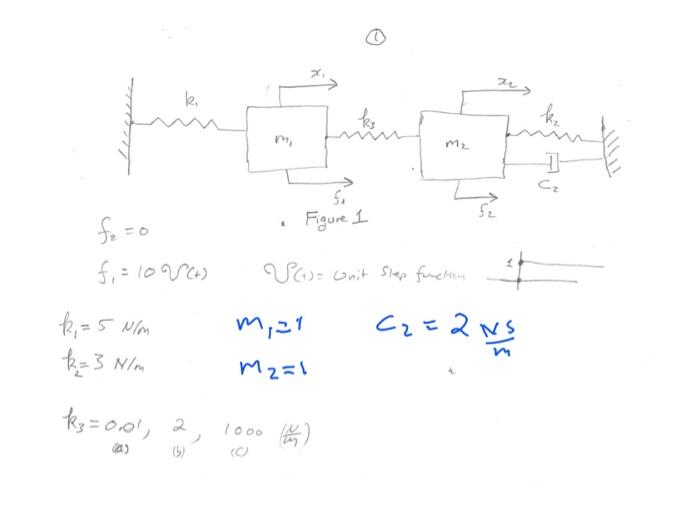 ①
x₁
x₂
k₁
k₃
k₂
m₁
m₂
C₂
f₁
f₂
Figure 1
f₂ = 0
f₁ = 10 U(t)
U(t) = Unit Step function
1
k₁ = 5 N/m
m₁ = 1
C₂ = 2 NS/m
k₂ = 3 N/m
m₂ = 1
k₃ = 0.01, 2, 1000 (N/m)
(a) (b) (c)